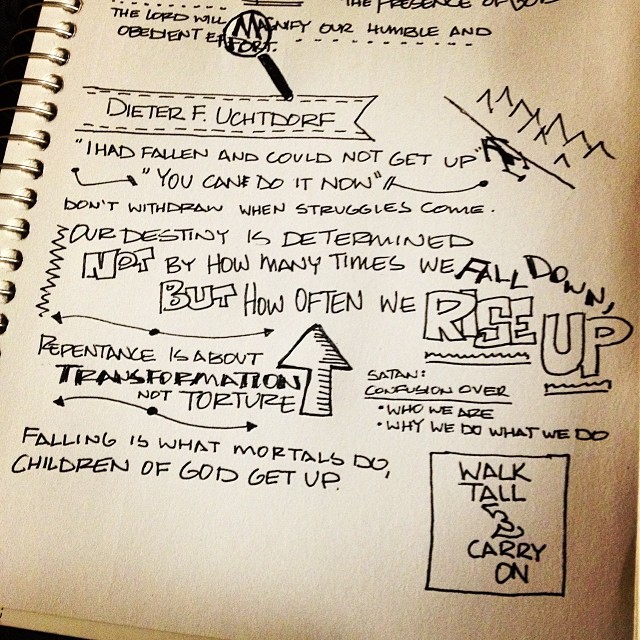 THE PRESENCE OF GOD
THE LORD WILL MAGNIFY OUR HUMBLE AND
OBEDIENT EFFORT.
DIETER F. UCHTDORF
"I HAD FALLEN AND COULD NOT GET UP"
"YOU CAN DO IT NOW"
DON'T WITHDRAW WHEN STRUGGLES COME.
OUR DESTINY IS DETERMINED
NOT BY HOW MANY TIMES WE FALL DOWN,
BUT HOW OFTEN WE RISE UP
REPENTANCE IS ABOUT
TRANSFORMATION
NOT TORTURE
SATAN:
CONFUSION OVER
• WHO WE ARE
• WHY WE DO WHAT WE DO
FALLING IS WHAT MORTALS DO,
CHILDREN OF GOD GET UP.
WALK
TALL
CARRY
ON